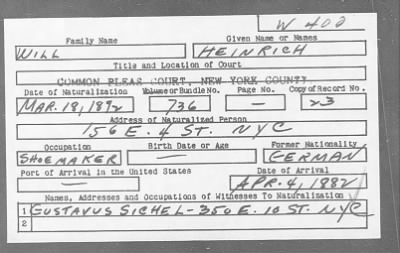 W 400
Family Name Given Name or Names
WILL HEINRICH
Title and Location of Court
COMMON PLEAS COURT, NEW YORK COUNTY.
Date of Naturalization Volume or Bundle No. Page No. Copy of Record No.
MAR. 18, 1892 736 — 23
Address of Naturalized Person
156 E. 4 ST. NYC
Occupation Birth Date or Age Former Nationality
SHOEMAKER — GERMAN
Port of Arrival in the United States Date of Arrival
— APR. 4, 1882
Names, Addresses and Occupations of Witnesses To Naturalization
1 GUSTAVUS SICHEL - 350 E. 10 ST. NYC
2